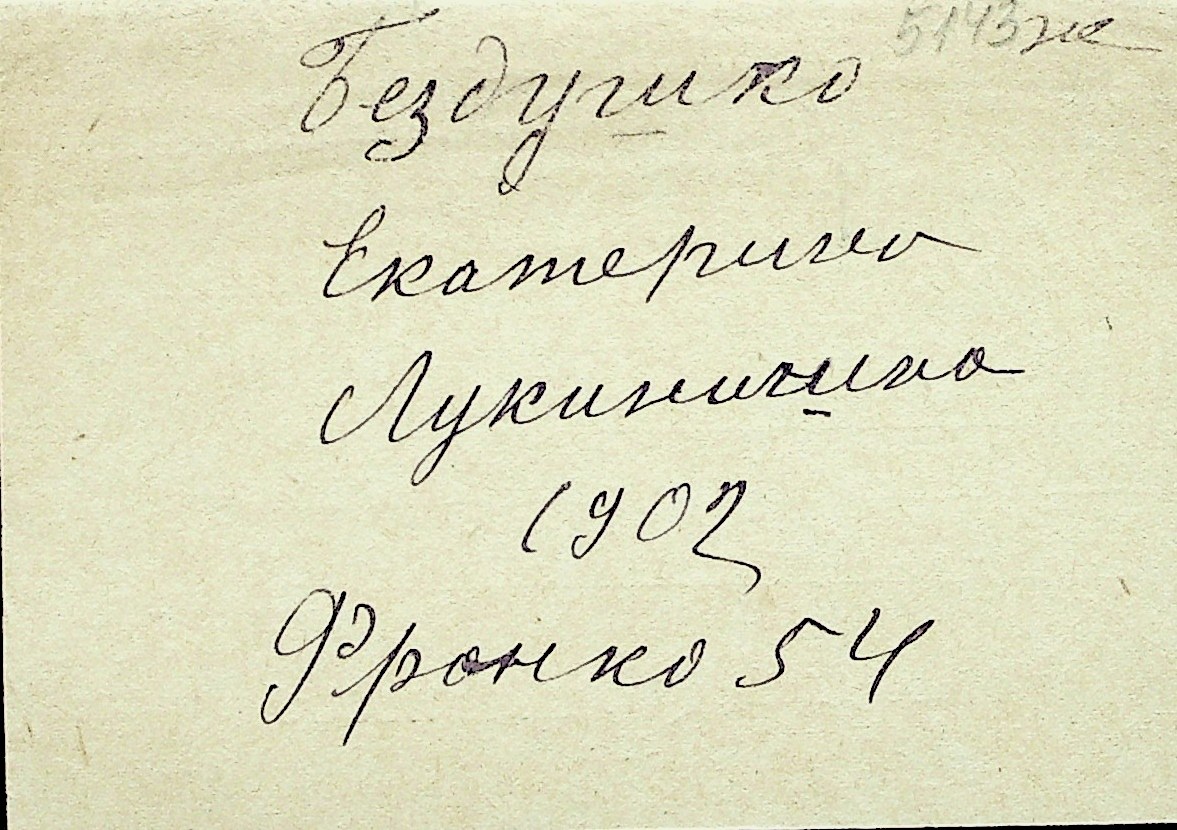 5143ж
Бездушко
Екатерина
Лукинична
1902
Франко 54